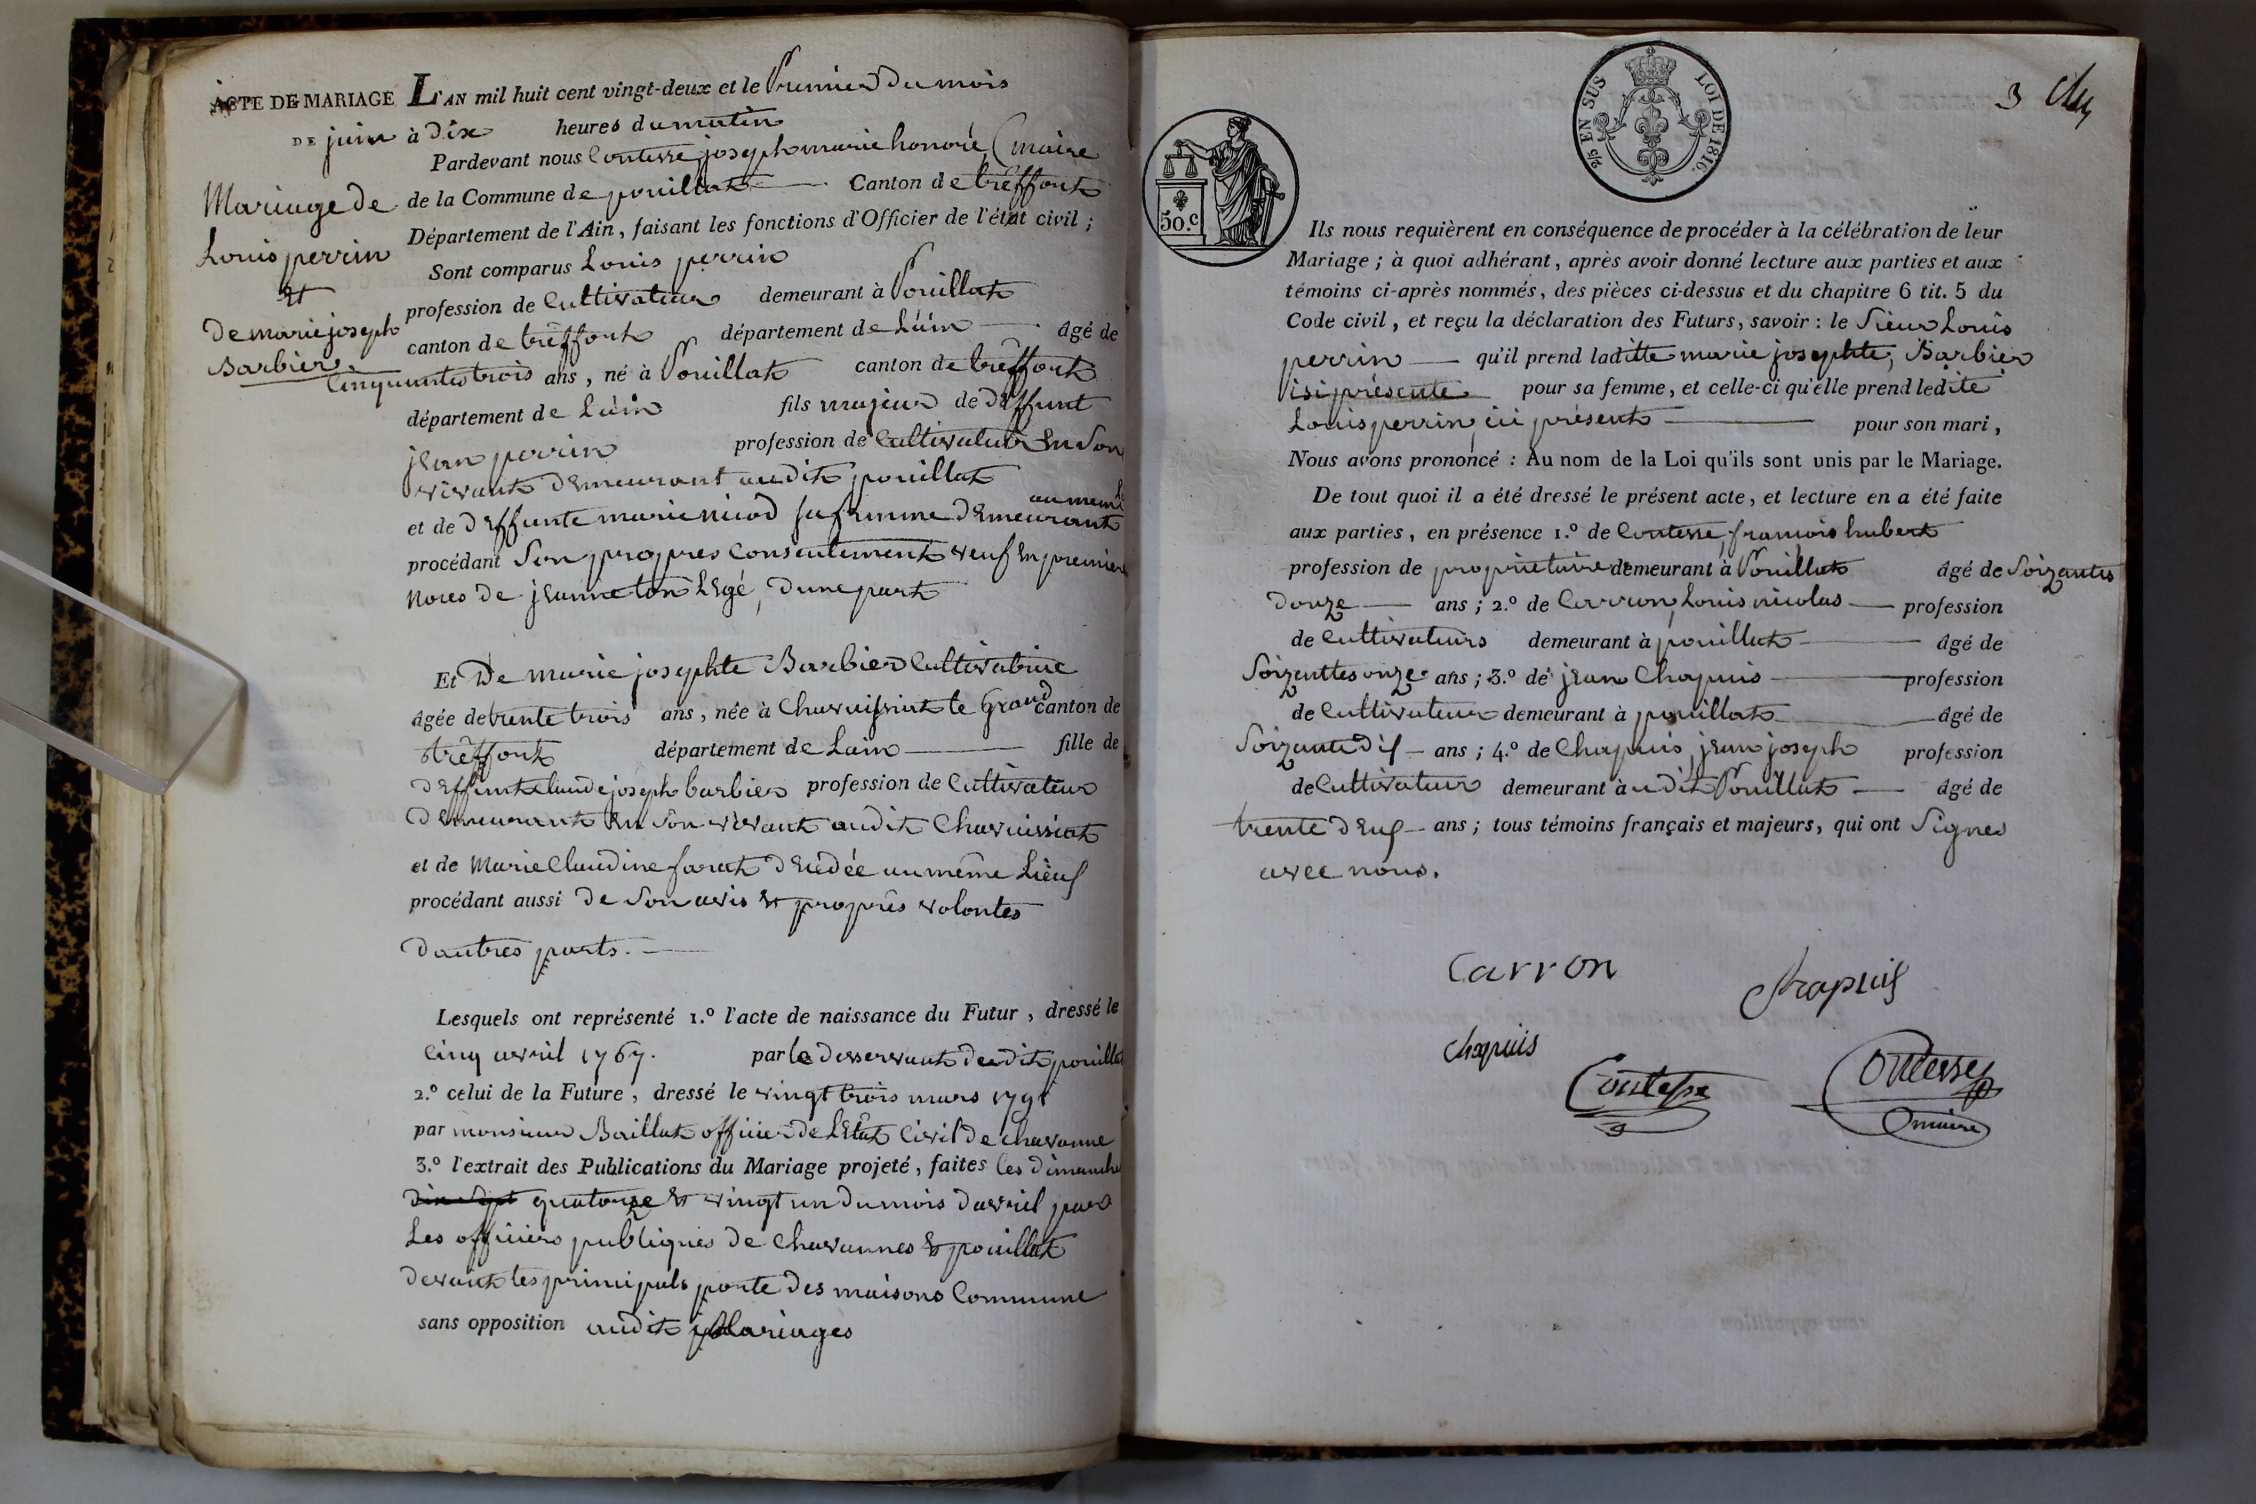 ACTE DE MARIAGE L'AN mil huit cent vingt-deux et le Premier du mois
DE juin à dix heures du matin
Pardevant nous Contesse, joseph marie honoré, maire
de la Commune de pouillat Canton de treffort
Département de l'Ain, faisant les fonctions d'Officier de l'état civil ;
Mariage de
Louis perrin
Et
De marie joseph
Barbier
Sont comparus Louis perrin
profession de Cultivateur demeurant à Pouillat
canton de treffort département de L'ain âgé de
Cinquantes trois ans, né à Pouillat canton de treffort
département de L'ain fils majeur de deffunt
jean perrin profession de Cultivateur En Son
vivant demeurant audit pouillat
et de deffunte marie nicod sa femme demeurant au meme
procédant Son propres Consentement veuf En premiere
noces de jeanne ton Legé, dune part
Et De marie josephte Barbier Cultivatrice
âgée de trente trois ans, née à Chavuissiat le Grand canton de
treffort département de Lain fille de
deffunt claude joseph barbier profession de Cultivateur
demeurant En Son vivant audit Chavuissiat
et de Marie Claudine farat décédée au même Lieu
procédant aussi de Son avis Et propres volontes
dautres parts.
Lesquels ont représenté 1.º l'acte de naissance du Futur, dressé le
Cinq avril 1767. par le desservant dudit pouillat
2.º celui de la Future, dressé le vingt trois mars 1791
par monsieur Baillat officier de L'Etat Civil de chavanne
3.º l'extrait des Publications du Mariage projeté, faites les dimanche
dix sept quatorze Et vingt un du mois davril par
Les officiers publiques de Chavannes Et pouillat
devant les principals porte des maisons Commune
sans opposition audit Mariages
3
2/5 EN SUS LOI DE 1816.
50.c
Ils nous requièrent en conséquence de procéder à la célébration de leur
Mariage ; à quoi adhérant, après avoir donné lecture aux parties et aux
témoins ci-après nommés, des pièces ci-dessus et du chapitre 6 tit. 5 du
Code civil, et reçu la déclaration des Futurs, savoir : le Sieur Louis
perrin qu'il prend laditte marie josephte, Barbier
isi présente pour sa femme, et celle-ci qu'elle prend ledite
Louis perrin, ici présent pour son mari,
Nous avons prononcé : Au nom de la Loi qu'ils sont unis par le Mariage.
De tout quoi il a été dressé le présent acte, et lecture en a été faite
aux parties, en présence 1.º de Contesse, francois hubert
profession de proprietaire demeurant à Pouillat âgé de Soizantes
douze ans ; 2.º de Carron, Louis nicolas profession
de Cultivateurs demeurant à pouillat âgé de
Soizenttes onze ans ; 3.º de jean Chapuis profession
de Cultivateur demeurant à pouillat âgé de
Soizante dis ans ; 4.º de Chapuis, jean joseph profession
de Cultivateur demeurant à udit Pouillat âgé de
trente deus ans ; tous témoins français et majeurs, qui ont Signes
avec nous.
Carron
Chapuis
chapuis
Contesse
Contesse
maire